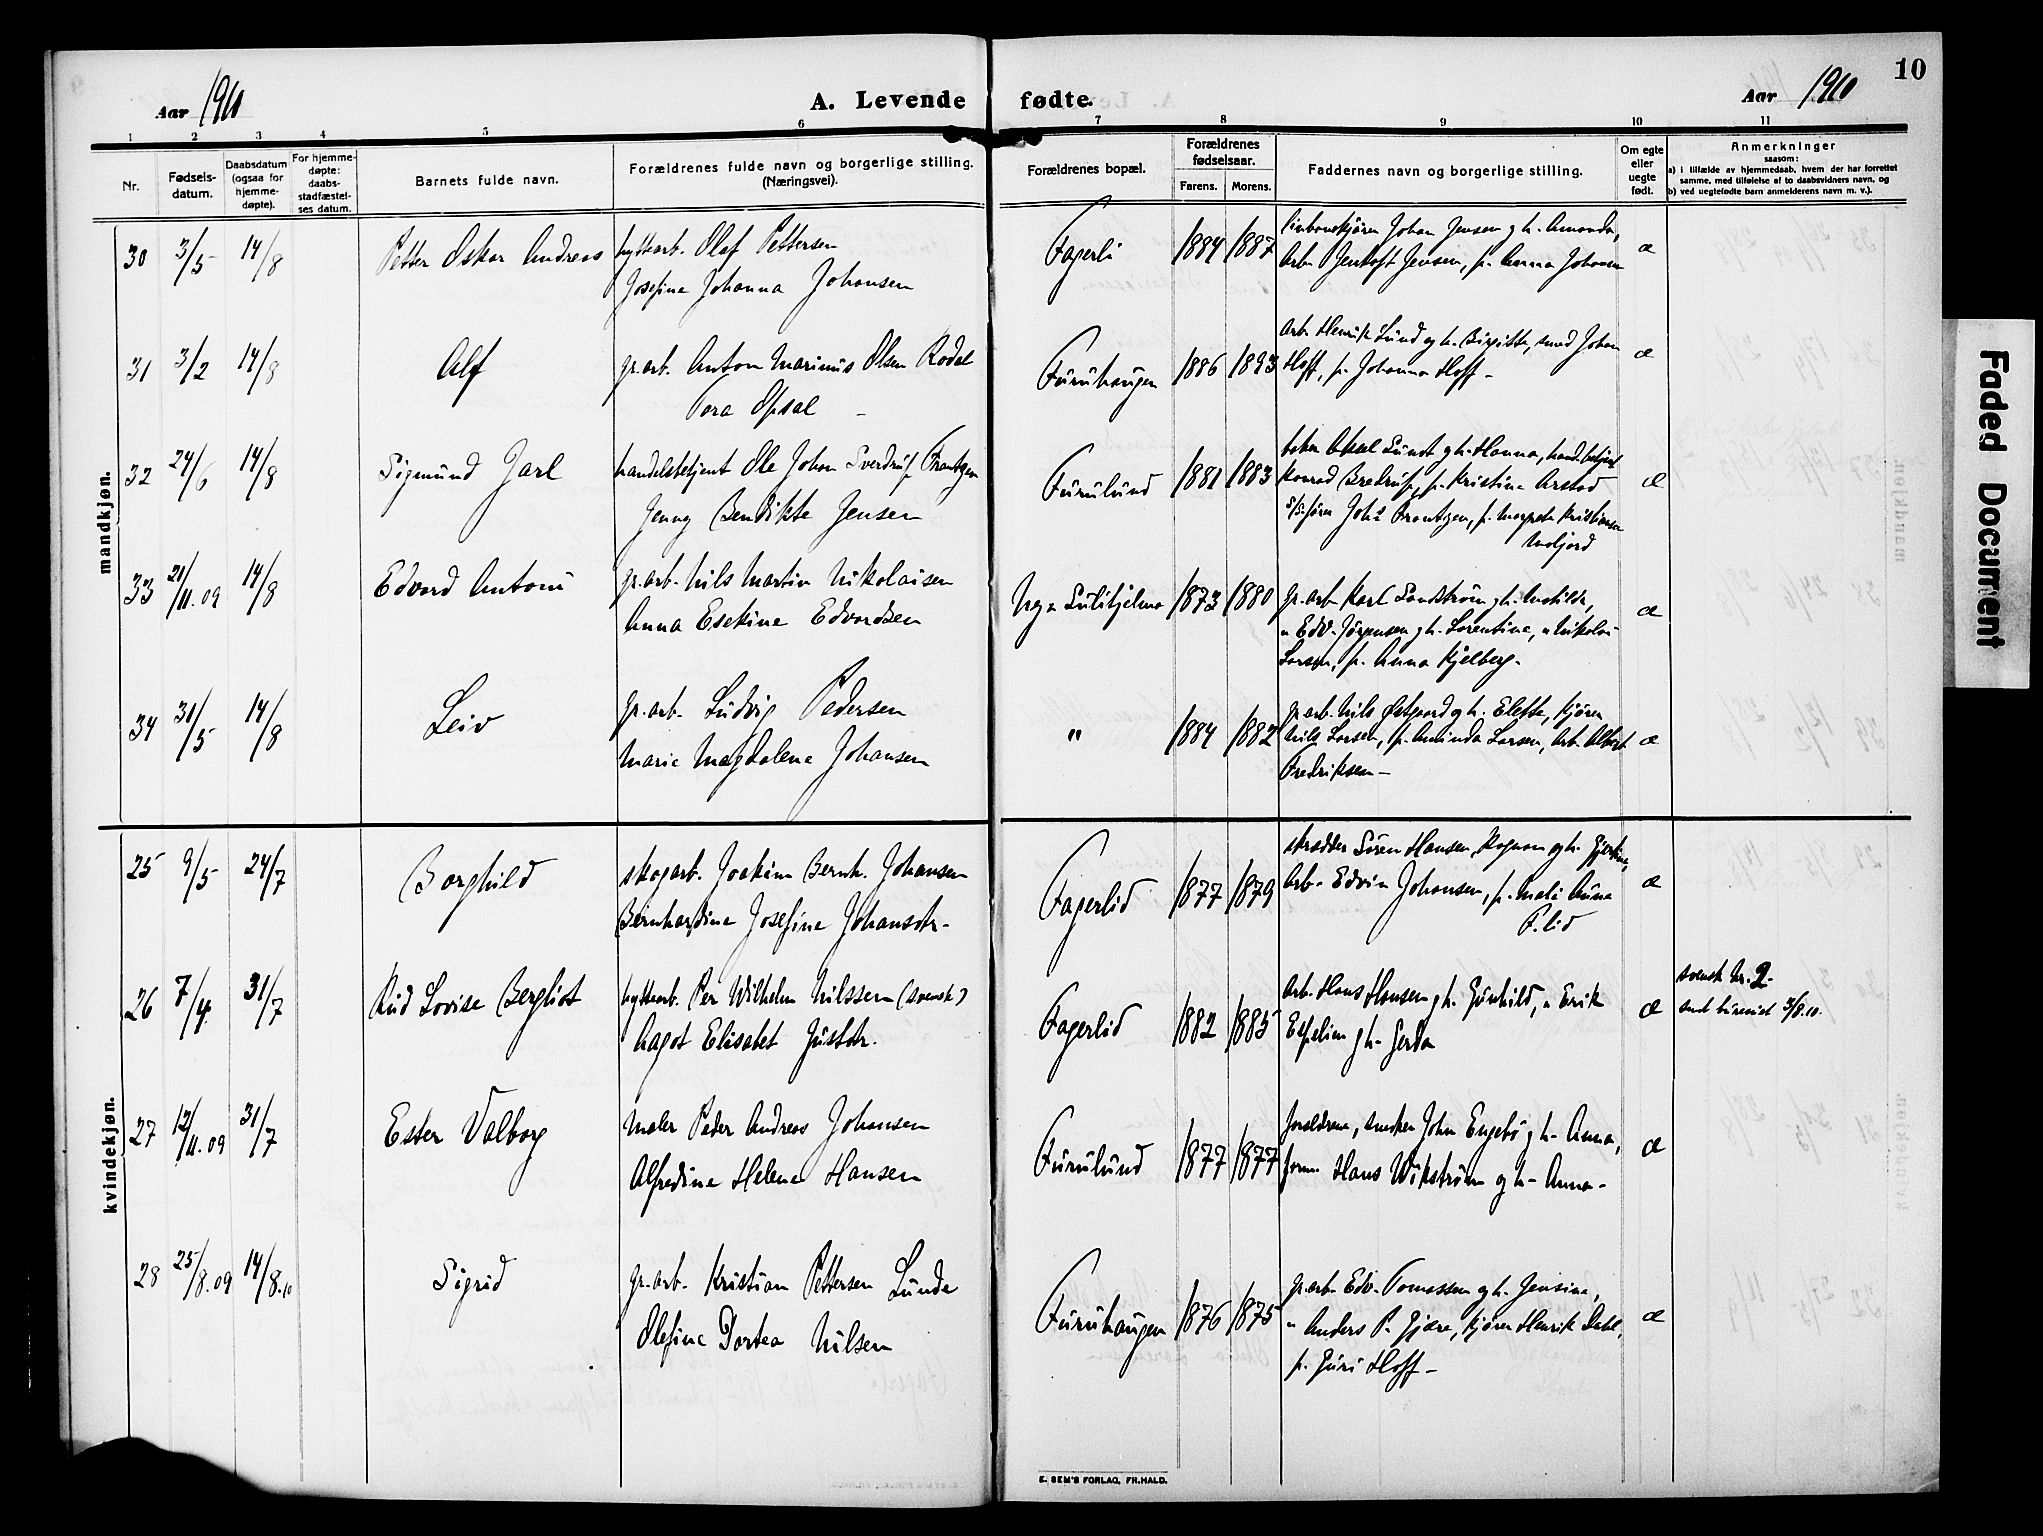 10
Aar 1910
A. Levende fødte.
Aar 1910
1 2 3 4 5 6 7 8 9 10 11
Nr.
Fødsels-
datum.
Daabsdatum
(ogsaa for
hjemme-
døpte).
For hjemme-
døpte:
daabs-
stadfæstel-
ses datum.
Barnets fulde navn.
Forældrenes fulde navn og borgerlige stilling.
(Næringsvei).
Forældrenes bopæl.
Forældrenes
fødselsaar.
Farens. Morens.
Faddernes navn og borgerlige stilling.
Om egte
eller
uegte
født.
Anmerkninger
saasom:
a) i tilfælde av hjemmedaab, hvem der har forrettet
samme, med tilføielse af to daabsvidners navn, og
b) ved uegtefødte barn anmelderens navn m. v.).
mandkjøn.
30 3/5 14/8 Petter Oskar Andreas hyttearb. Olaf Pettersen
Josefine Johanna Johansen
Fagerli 1884 1887
Johan Jensen g h. Amanda,
arb. Gentoft Jensen, p. Anna Johansen
æ
31 3/2 14/8 Alf gr.arb. Anton Marinus Olsen Rodal
Tora Opsal
Furuhaugen 1886 1893
arb. Henrik Lund og h. Birgitte, smed Johan
Hoff, p. Johanna Hoff -
æ
32 24/6 14/8 Sigmund Jarl handelsbetjent Ole Johan Sverdrup Frantzen
Jenny Bendikte Jensen
Furulund 1881 1883
Lundt g h. Hanna, hand.betjent
Konrad Bredrup, p. Kristine Arstad
Johs Frantzen, p. Margrete Kristiansen
Misvjord
æ
33 21/11.09 14/8 Edvard Antoni gr.arb. Nils Martin Nikolaisen
Anna Esekine Edvardsen
Ny-Sulitjelma 1873 1880
gr.arb. Karl Sandström g h. Matilde,
" Edv. Jörgensen g h. Lorentine, " Nikolai
Larsen, p. Anna Kjelberg.
æ
34 31/5 14/8 Leiv gr.arb. Ludvig Pedersen
Marie Magdalene Johansen
" 1884 1882
gr.arb. Nils Østgaard og h. Elette, kjører
Nils Larsen, p. Aminda Larsen, arb. Albert
Fredriksen -
æ
kvindekjøn.
25 9/5 24/7 Borghild skogarb. Joakim Bernh. Johansen
Bernhardine Josefine Johansdtr.
Fagerlid 1877 1879
skrædder Sören Hansen, Rognan og h. Gjertine,
arb. Edvin Johansen, p. Mali Anna
F.lid
æ
26 7/4. 31/7 Rud Lovise Bergliot hyttearb. Per Wilhelm Nilssen (svensk)
Hagot Elisabet Justdtr.
Fagerlid 1882 1885
arb. Hans Hansen g h. Gunhild, " Erik
Espelien g h. Gerda
æ
svensk nr. 2.
3/8.10.
27 12/11.09 31/7 Ester Valborg Maler Peder Andreas Johansen
Alfredine Helene Hansen
Furulund 1877 1877
forældrene, snekker John Engebö g h. Anna,
form. Hans Wikström og h. Anna.
æ
28 25/8.09 14/8.10 Sigrid gr.arb. Kristian Pettersen Lunde
Olefine Dortea Nilsen
Furuhaugen 1876 1875
gr.arb. Edv. Tomassen g h. Jensine,
" Anders P. Gjære, kjører Henrik Dahl,
p. Guri Hoff -
æ
E. SEM'S FORLAG, FR.HALD.
Faded Document